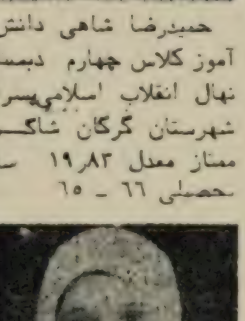 حمیدرضا شاهی دانش
آموز کلاس چهارم دبست
نهال انقلاب اسلامی‌پسرا
شهرستان گرگان شاگـــر
ممتاز معدل ۱۹٫۸۳ سـ
تحصیلی ٦٦ ـ ٦٥